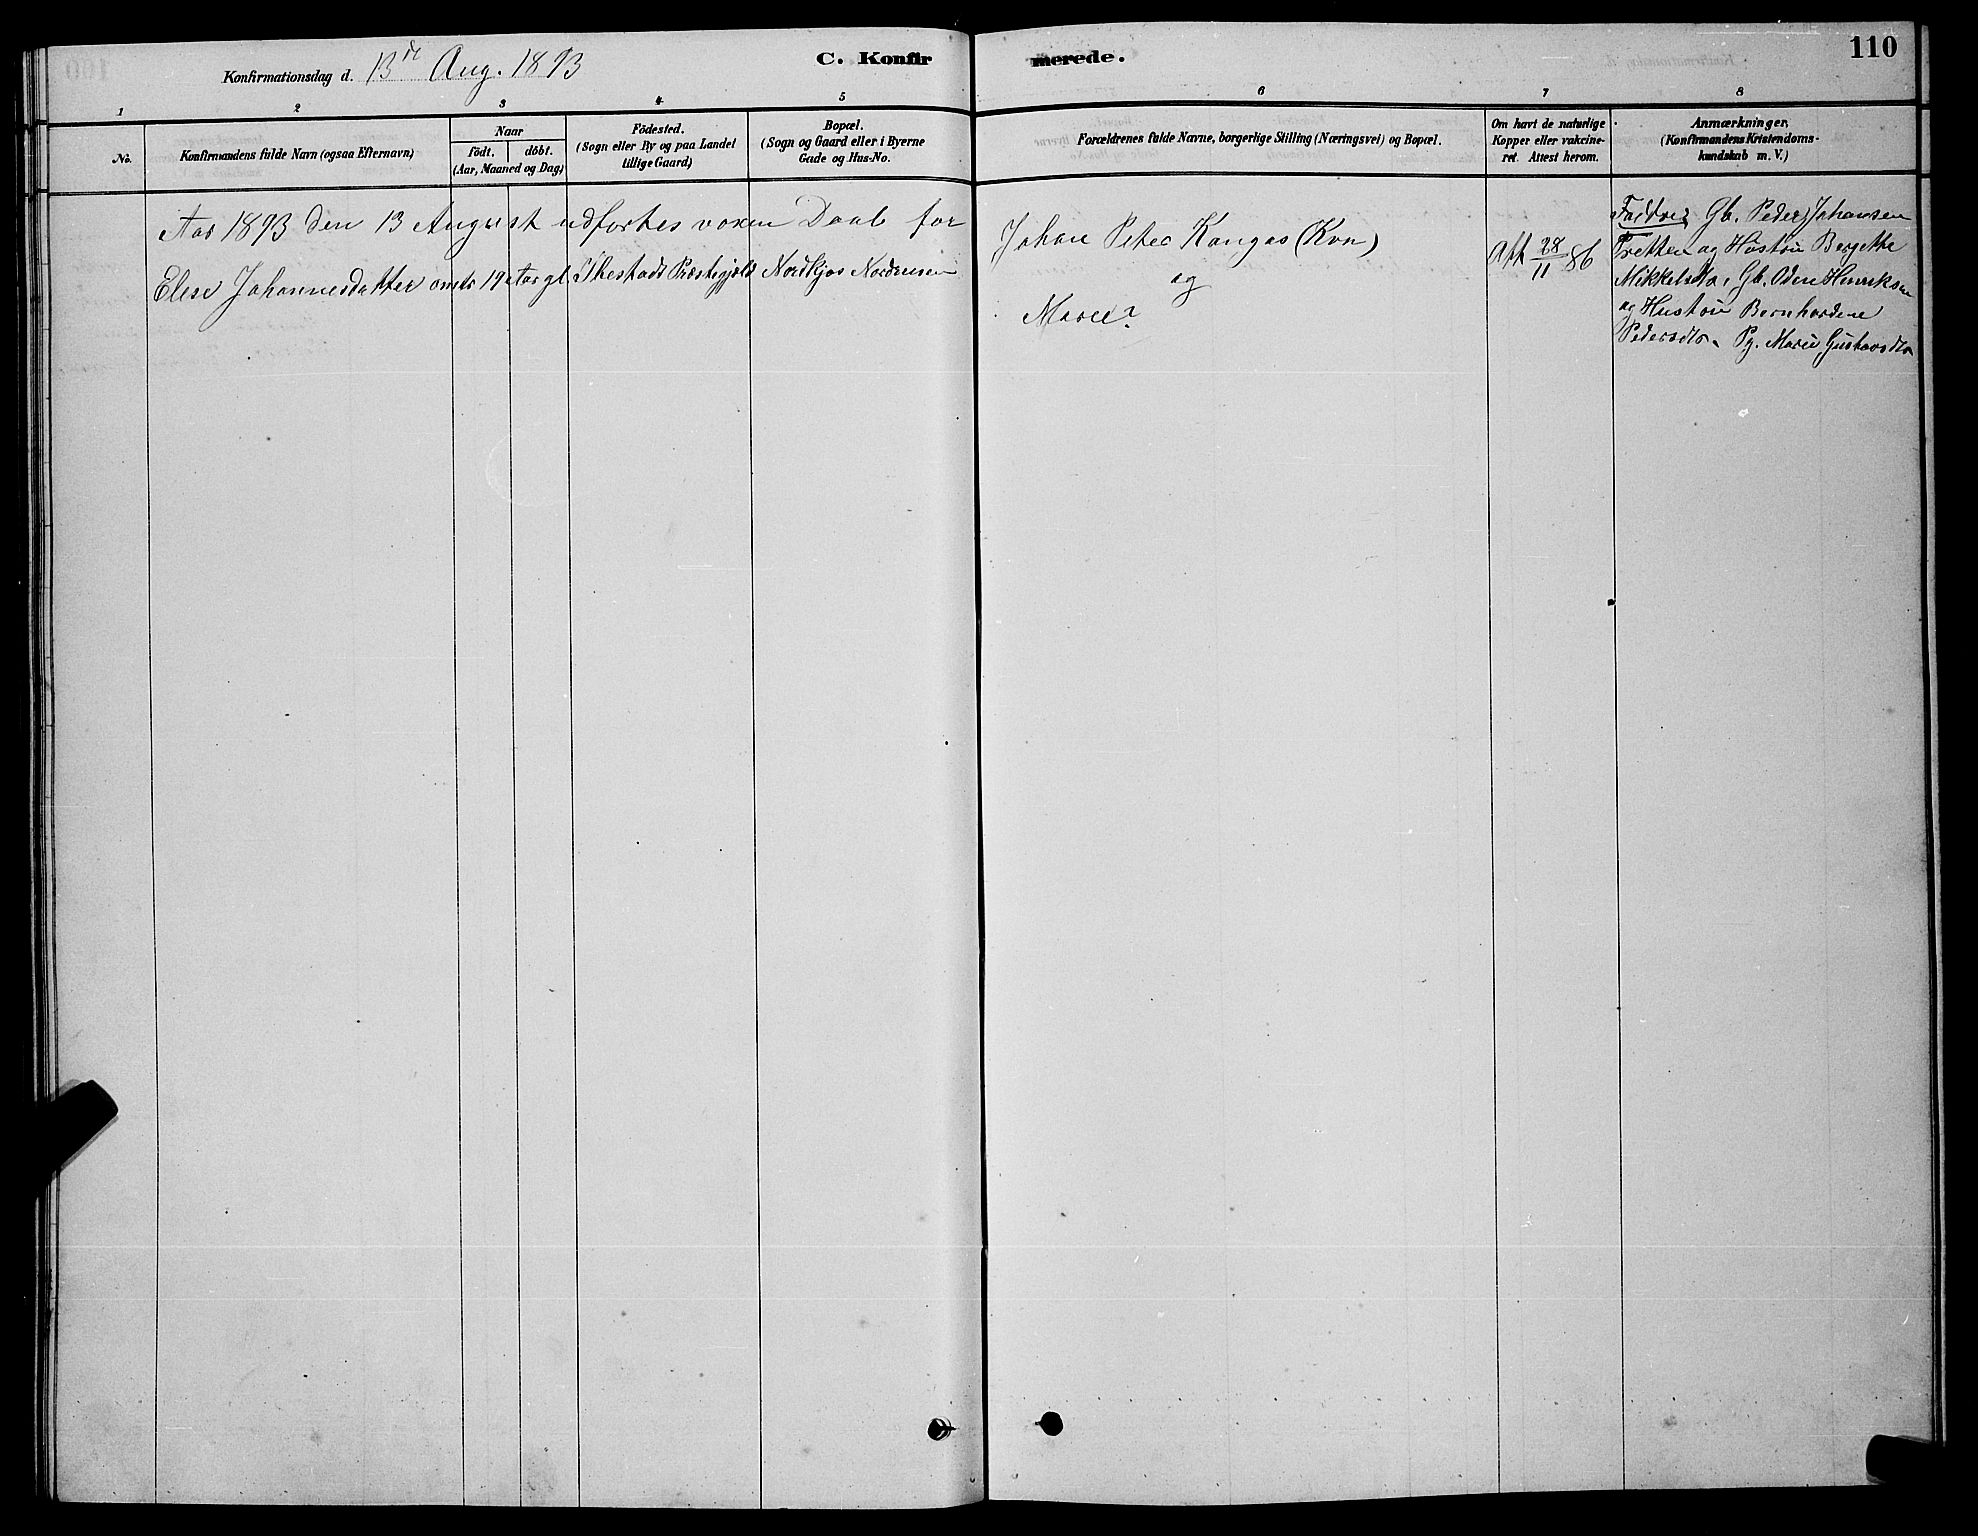 110
Konfirmationsdag d. 13de Aug. 1893
C. Konfirmerede.
1 2 3 4 5 6 7 8
No.
Konfirmandens fulde Navn (ogsaa Efternavn)
Naar
födt. döbt.
(Aar, Maaned og Dag)
Födested.
(Sogn eller By og paa Landet
tillige Gaard)
Bopæl.
(Sogn og Gaard eller i Byerne
Gade og Hus-No.
Forældrenes fulde Navne, borgerlige Stilling (Næringsvei) og Bopæl.
Om havt de naturlige
Kopper eller vakcine-
ret. Attest herom.
Anmærkninger.
(Konfirmandens Kristendoms-
kundskab m. V.)
Aar 1893 den 13 August udførtes voxen Daab for
Elese Johannesdatter omtr 19 Aar gl. Præstegjæld
Johan Peter Kangas (Kvn)
og
Marie?
Att 28/11 86
Faddere Gb. Peder Johansen
Tretten og Hustru Bergethe
Mikkelsdtr, Gb. Oden Henriksen
og Hustru Bernhardine
Pedersdtr. Pg. Marie Gustavsdtr